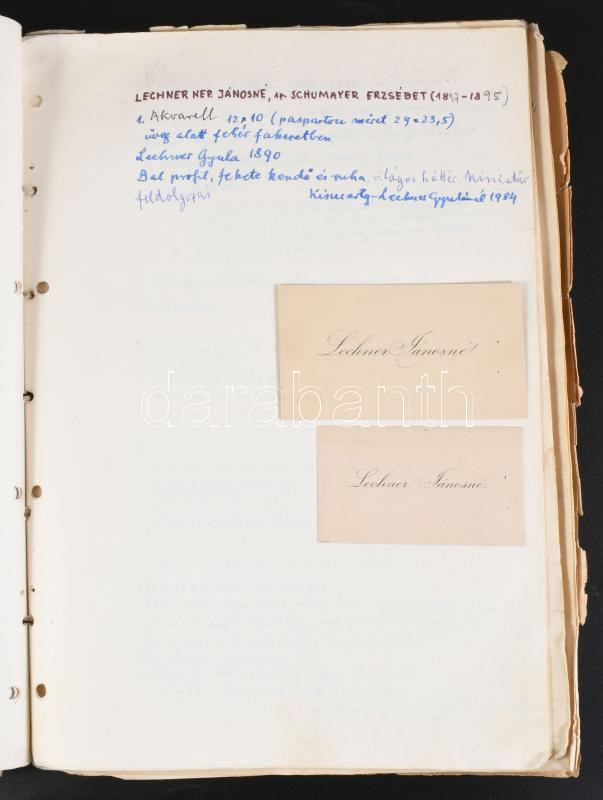 LECHNER NEP. JÁNOSNÉ, SCHUMAYER ERZSÉBET (1817-1895)
1. Akvarell 12x10 (paspartou méret 29x23,5)
üveg alatt fehér fakeretben
Lechner Gyula 1890
Bal profil, fekete kendő és ruha, világos háttér. Miniatűr
feldolgozás Kismarty-Lechner Gyulánál 1984
Lechner Jánosné
darabanth
Lechner Jánosné